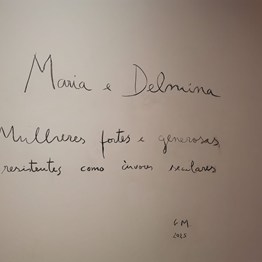 Maria e Delmina
Mulheres fortes e generosas,
resistentes como árvores seculares
G.M.